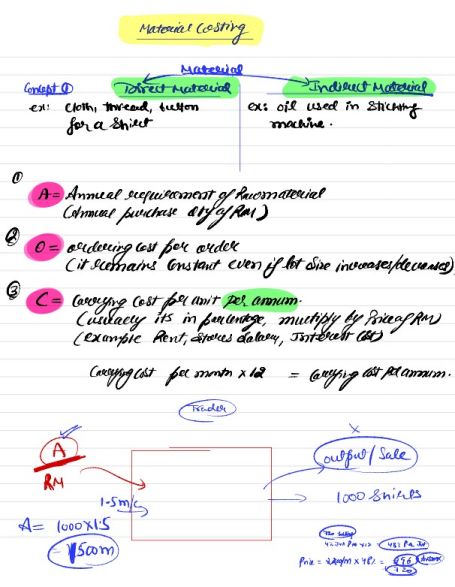 Material Costing
Material
Concept ① Direct Material Indirect Material
ex: cloth, thread, button ex: oil used in stitching
for a shirt machine.
①
A = Annual requirement of Raw material
(Annual purchase qty of RM)
②
O = ordering cost per order
(it remains constant even if lot size increases/decreases)
③
C = Carrying cost per unit per annum.
(usually its in percentage, multiply by Price of RM)
(example Rent, stores salary, Interest
Carrying cost per month x 12 = Carrying cost per annum.
Trader
A
RM
x
output/Sale
1.5m/
1000 Shirts
A = 1000x1.5
1500m